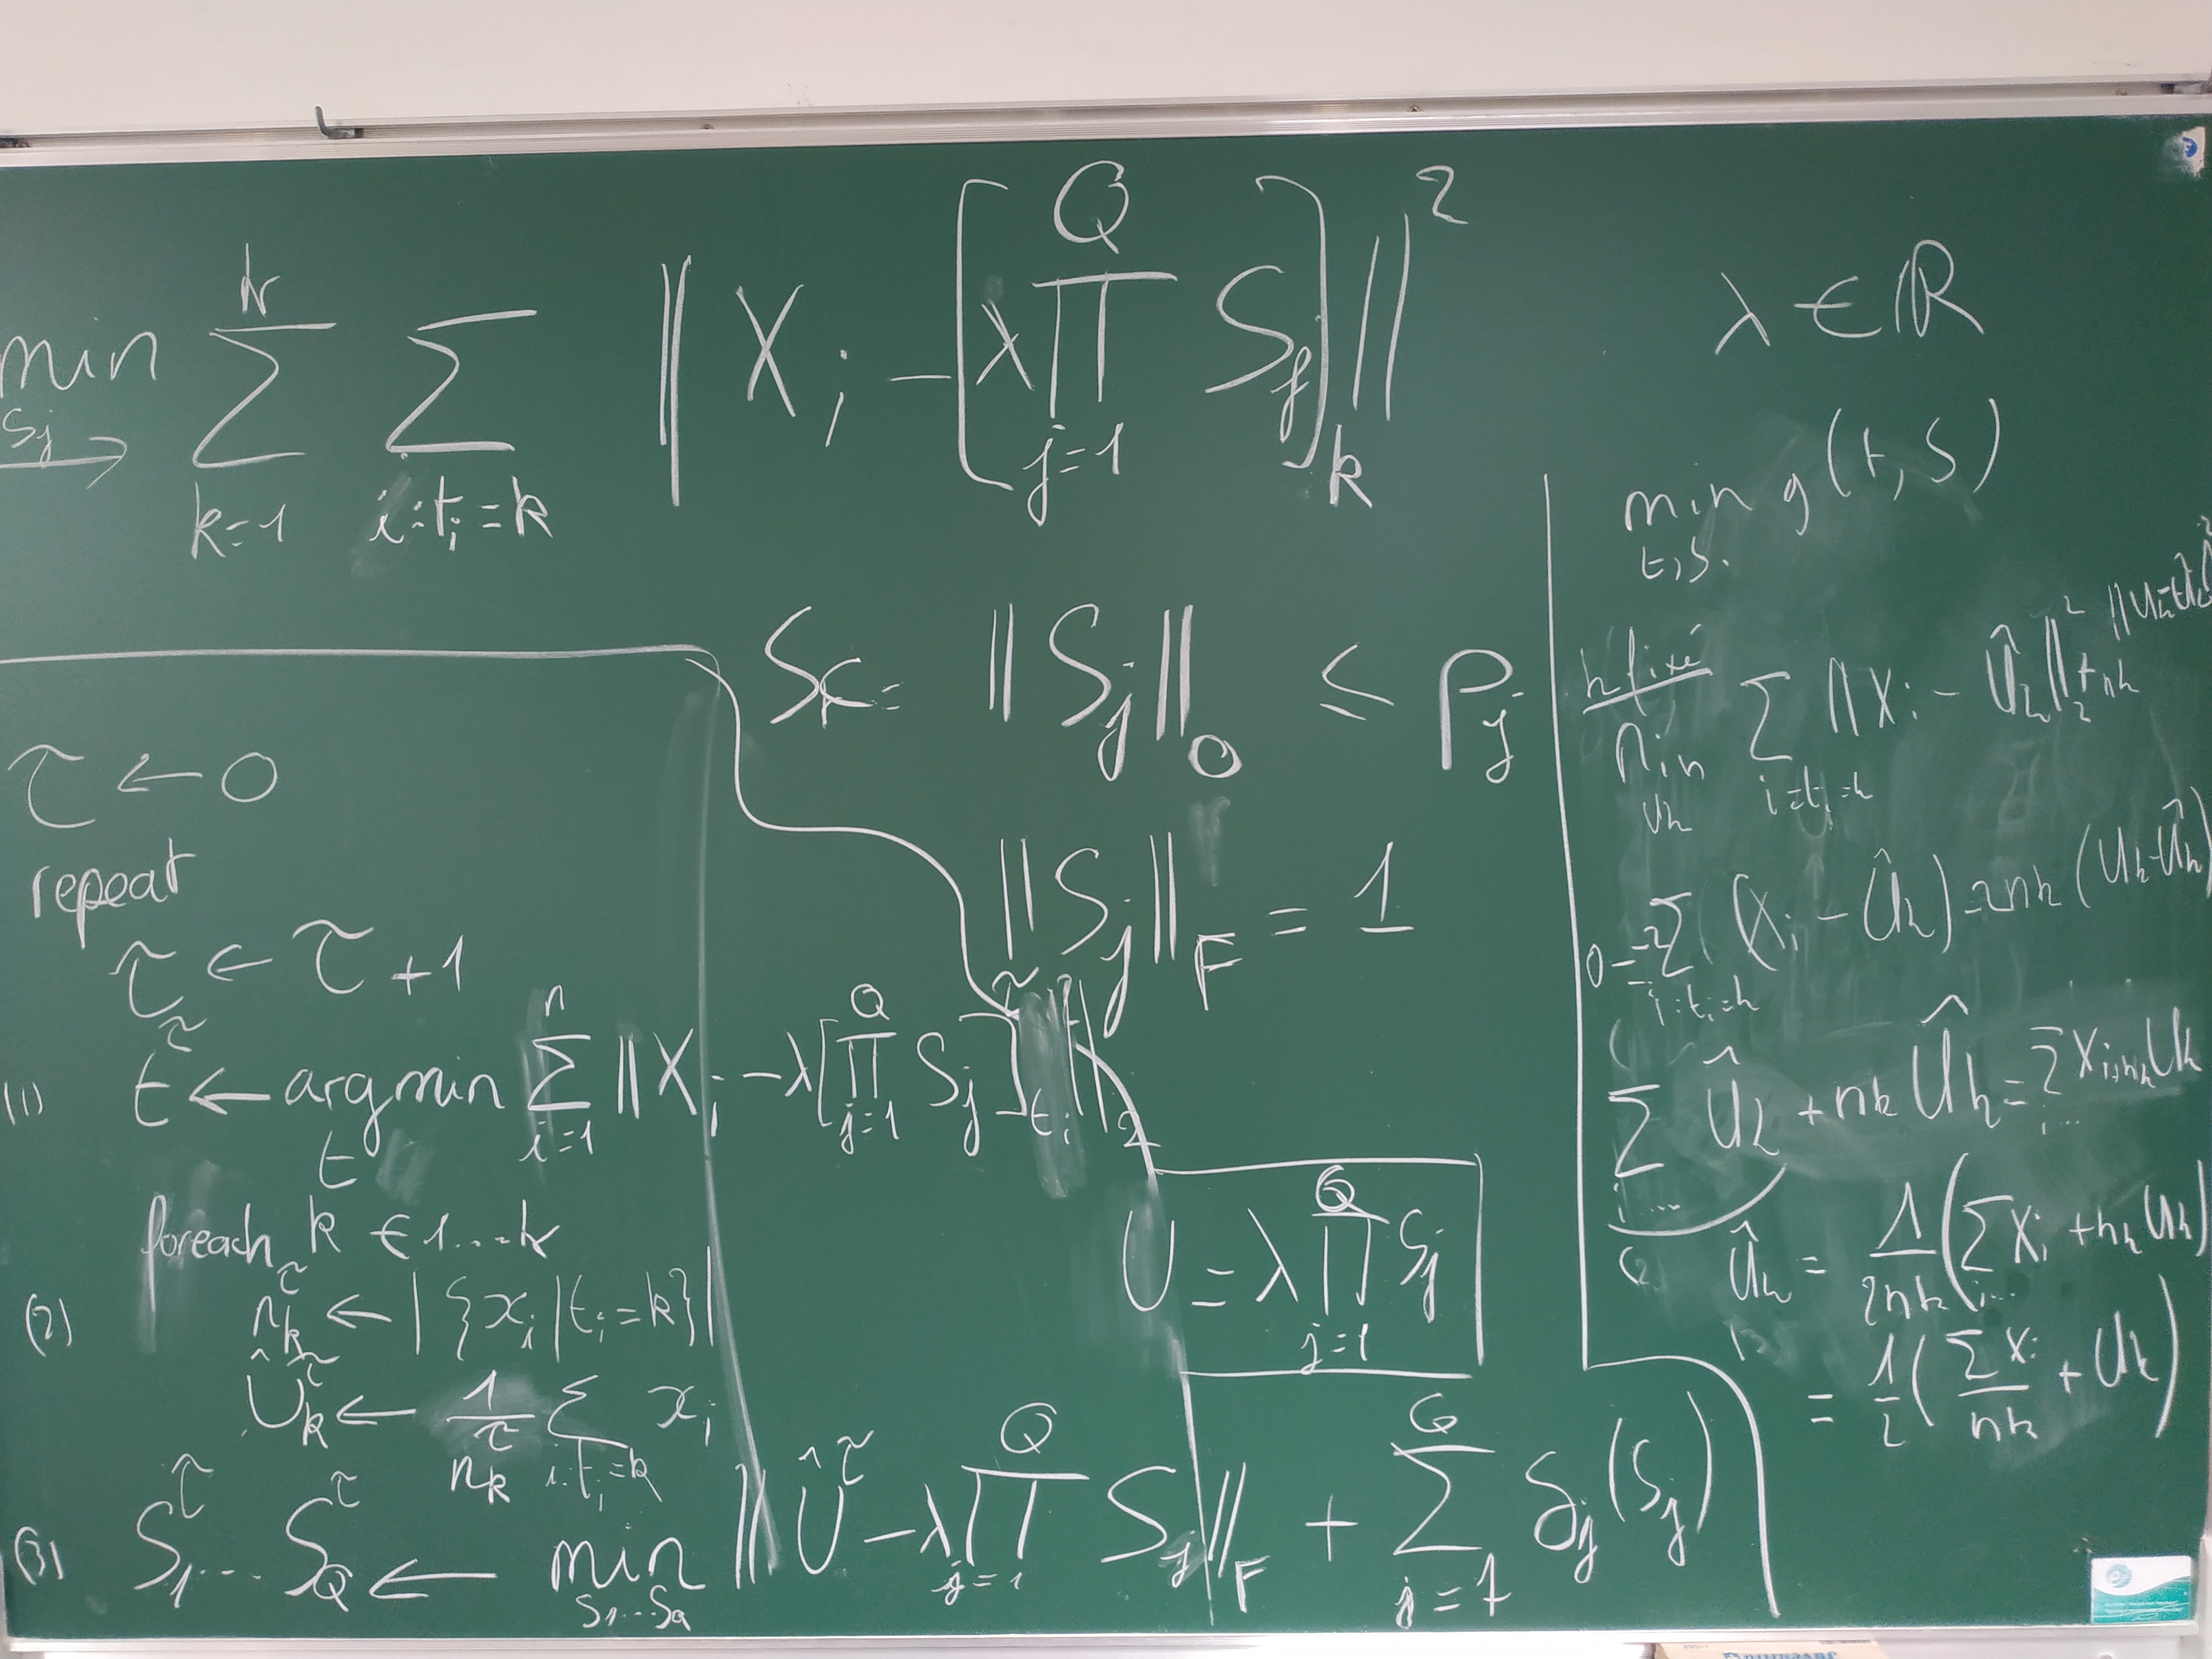 min_{S_j} → \sum_{k=1}^{K} \sum_{i:t_i=k} \| X_i - [λ \prod_{j=1}^{Q} S_j]_k \|^2
λ ∈ ℝ
min_{t,S.} g(t,S)
\| S_j \|_0 ≤ p_j
\| S_j \|_F = 1
τ ← 0
repeat
τ ← τ + 1
(1) t^τ ← argmin_t \sum_{i=1}^{n} \| X_i - λ [\prod_{j=1}^{Q} S_j^τ]_{t_i} \|_2
foreach k ∈ 1...K
(2) n_k^τ ← |{x_i | t_i = k}|
\hat{U}_k^τ ← \frac{1}{n_k^τ} \sum_{i:t_i=k} x_i
(3) S_1^τ ... S_Q^τ ← min_{S_1...S_Q} \| \hat{U}^τ - λ \prod_{j=1}^{Q} S_j \|_F + \sum_{j=1}^{Q} δ_j(S_j)
U = λ \prod_{j=1}^{Q} S_j
k fixé
Min_{U_k} \sum_{i:t_i=k} \| X_i - \hat{U}_k \|_2^2 + n_k \| U_k - \hat{U}_k \|^2
0 = -2 \sum_{i:t_i=k} (X_i - \hat{U}_k) - 2n_k (U_k - \hat{U}_k)
\sum_{i...} \hat{U}_k + n_k \hat{U}_k = \sum_{i...} X_i + n_k U_k
\hat{U}_k = \frac{1}{2n_k} (\sum_{i...} X_i + n_k U_k)
= \frac{1}{2} (\frac{\sum X_i}{n_k} + U_k)